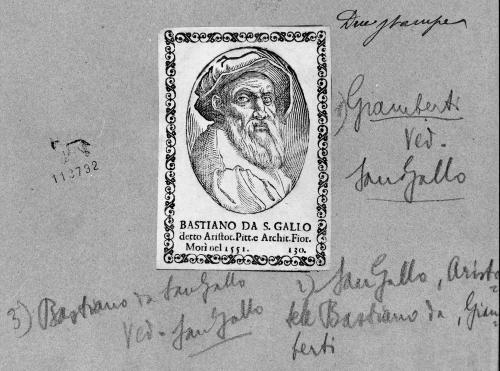 Due stampe
1) Giamberti
Ved.
San Gallo
118792
BASTIANO DA S. GALLO
detto Aristot. Pitt. e Archit. Fior.
Morì nel 1551. 130.
3) Bastiano da San Gallo
Ved. San Gallo
2) San Gallo, Aristo-
tele Bastiano da, Giam-
berti